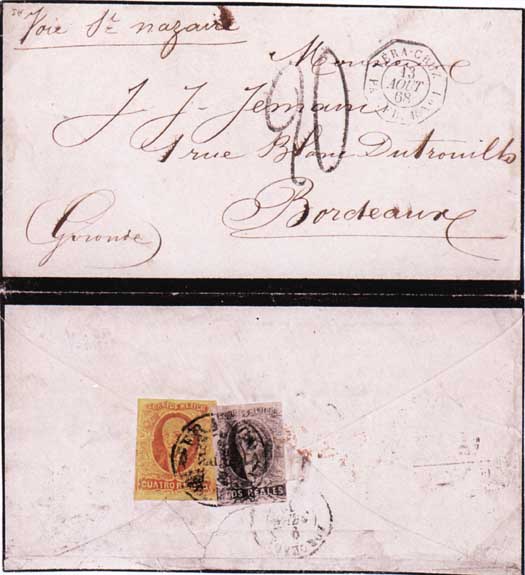 Voie St nazaire
Monsieur
J. J. Jemain
1 rue Blanc Dutrouilh
Bordeaux
Gironde
90
VERA-CRUZ
13
AOUT
68
CORREOS MEXICO
CUATRO REALES
CORREOS MEXICO
DOS REALES